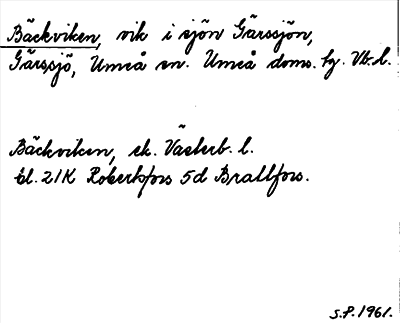 Bäckviken, vik i sjön Gärssjön,
Gärssjö, Umeå sn. Umeå doms. hg. Vb. l.
Bäckviken, ek. Västerb. l.
bl. 21K Robertsfors 5d Brattfors.
S.P. 1961.